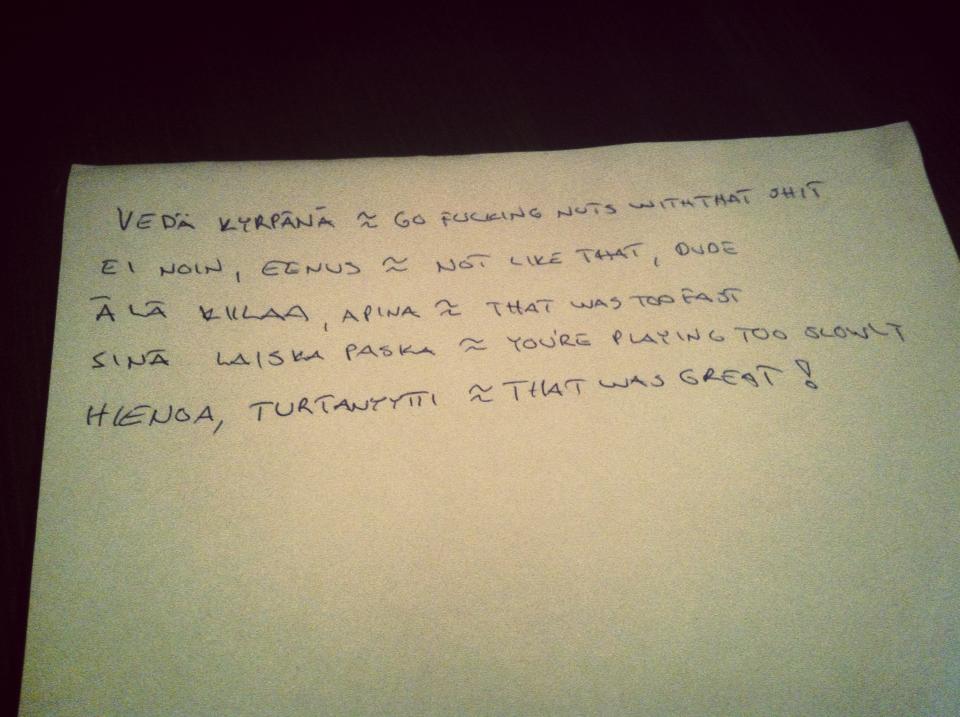 VEDÄ KYRPÄNÄ ≈ GO FUCKING NUTS WITH THAT SHIT
EI NOIN, EENUS ≈ NOT LIKE THAT, DUDE
ÄLÄ KIILAA, APINA ≈ THAT WAS TOO FAST
SINÄ LAISKA PASKA ≈ YOU'RE PLAYING TOO SLOWLY
HIENOA, TURTANYYTTI ≈ THAT WAS GREAT!